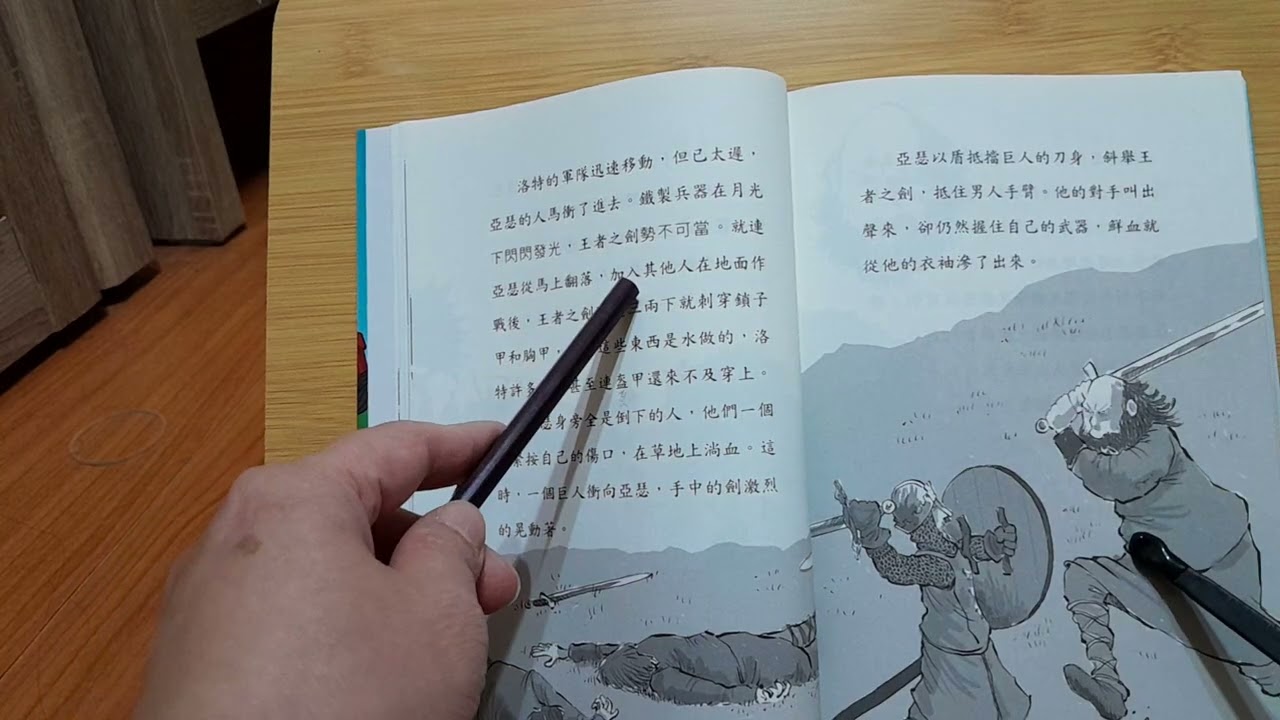 洛特的軍隊迅速移動，但已太遲，
亞瑟的人馬衝了進去。鐵製兵器在月光
下閃閃發光，王者之劍勢不可當。就連
亞瑟從馬上翻落，加入其他人在地面作
戰後，王者之劍三兩下就刺穿鎖子
甲和胸甲，這些東西是水做的，洛
特許多甚至連盔甲還來不及穿上。
身旁全是倒下的人，他們一個
緊按自己的傷口，在草地上淌血。這
時，一個巨人衝向亞瑟，手中的劍激烈
的晃動著。
亞瑟以盾抵擋巨人的刀身，斜舉王
者之劍，抵住男人手臂。他的對手叫出
聲來，卻仍然握住自己的武器，鮮血就
從他的衣袖滲了出來。